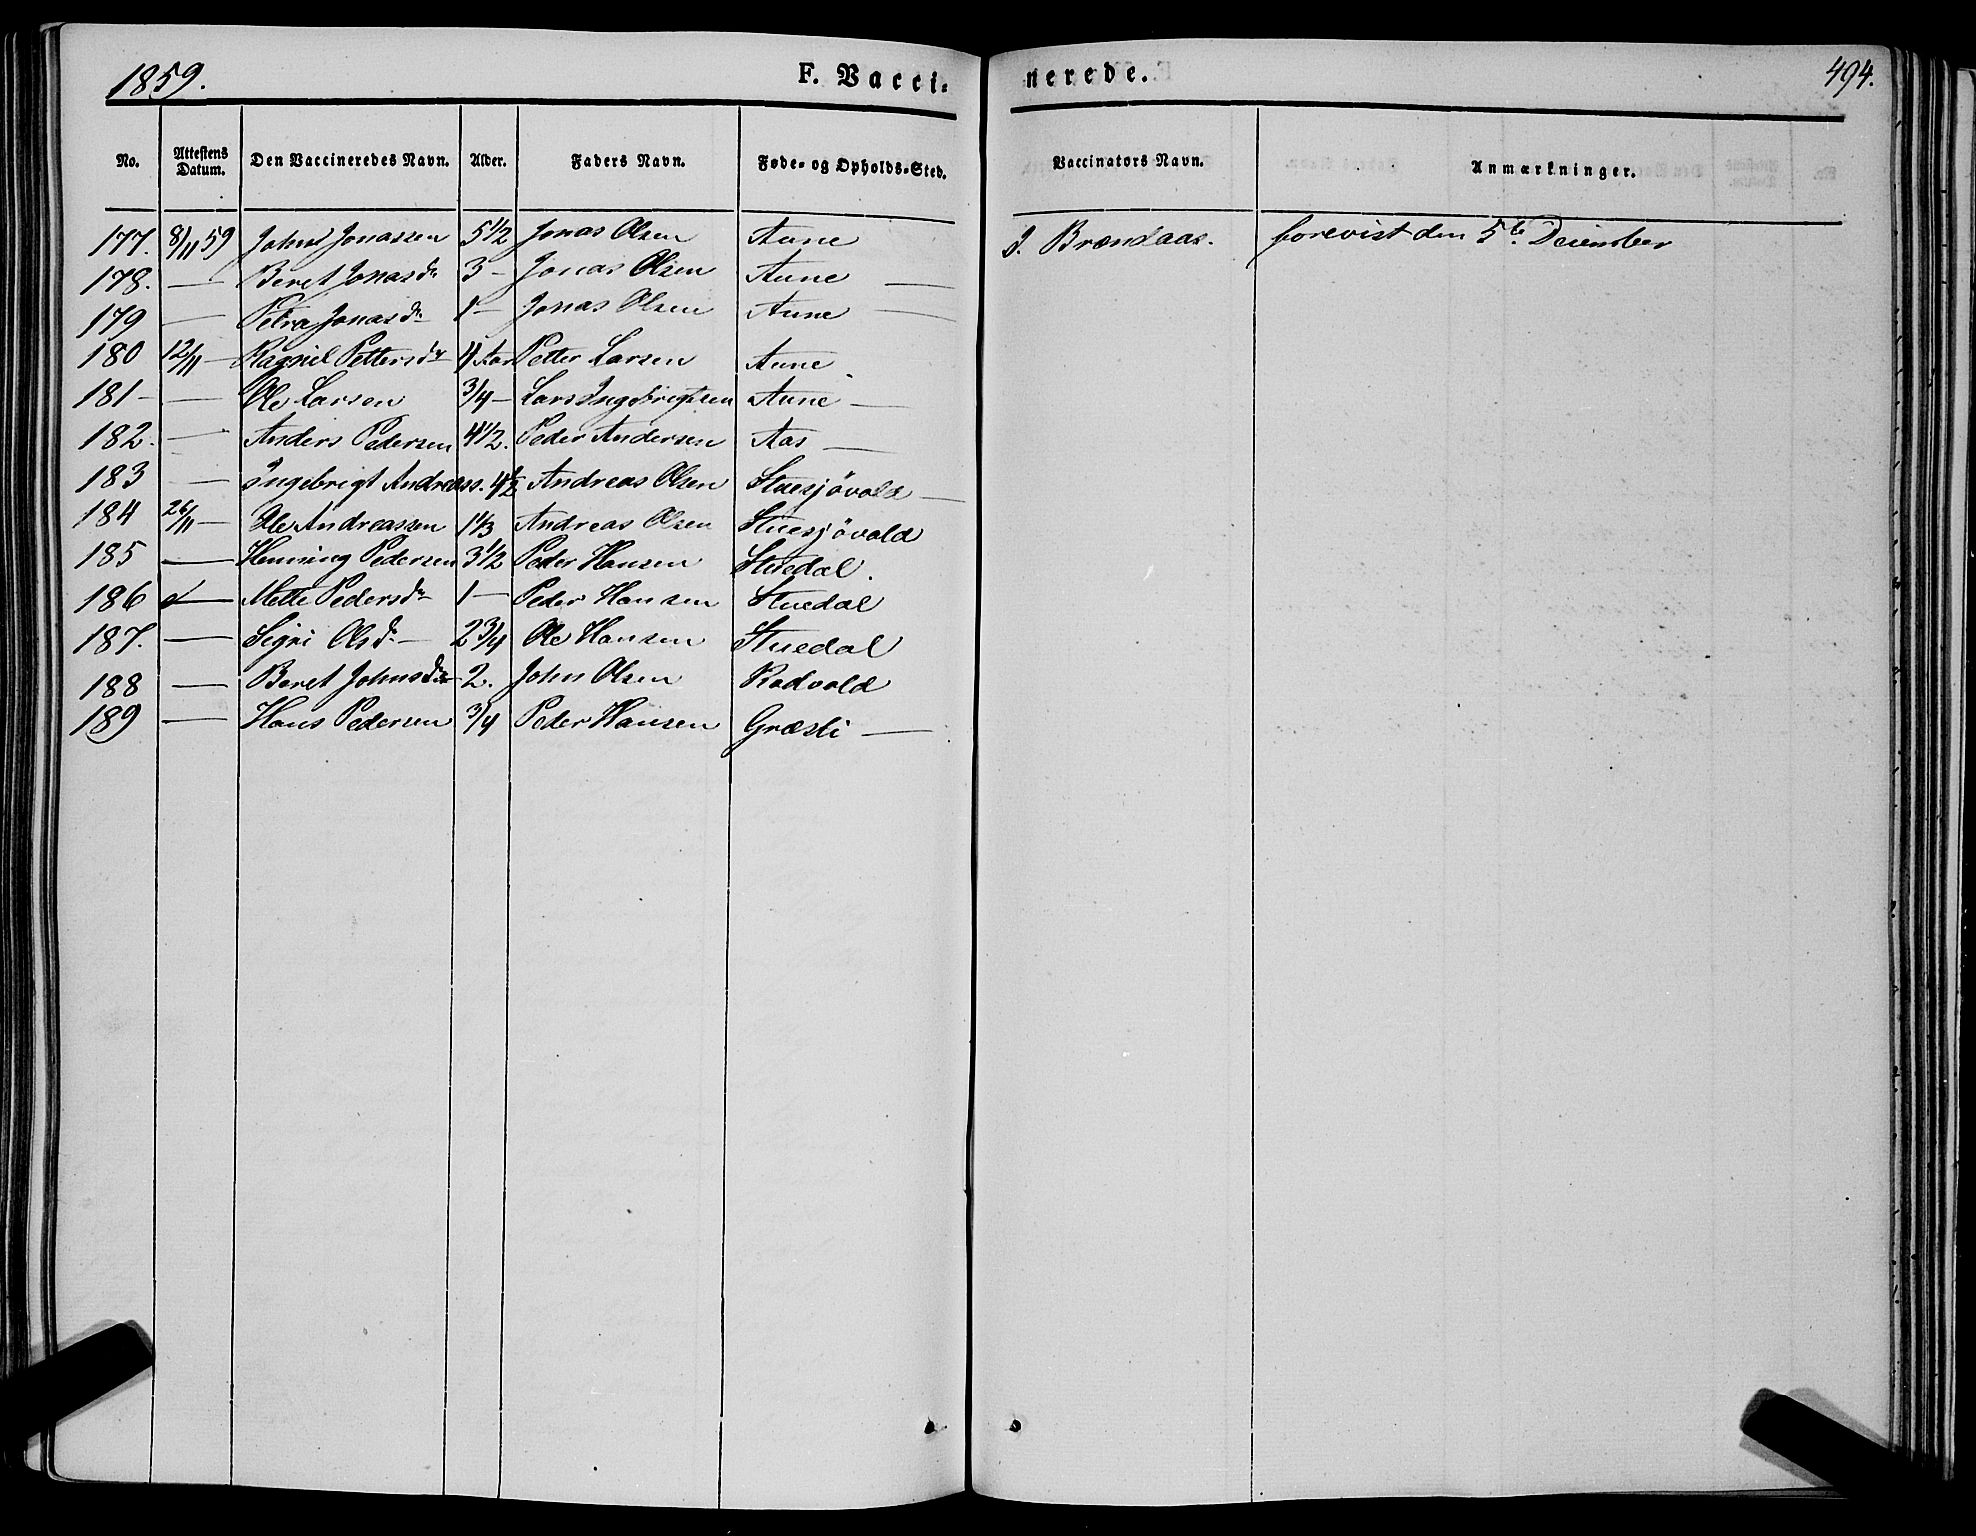 1859. F. Vacci- nerede. 494.
No. Attestens Datum. Den Vaccineredes Navn. Alder. Faders Navn. Føde- og Opholds-Sted. Vaccinators Navn. Anmærkninger.
177. 8/11 59 John Jonassen 5 1/2 Jonas Olsen Aune J. Brændaas. forevist den 5te December
178. — Beret Jonasdr 3 — Jonas Olsen Aune —
179 — Petra Jonasdr 1 — Jonas Olsen Aune —
180 12/11 — Ragnil Pettersdr 4 Aar Petter Larsen Aune
181 — — Ole Larsen 3/4 — Lars Ingebrigtsen Aune —
182. — Anders Pedersen 4 1/2. Peder Andersen Aas —
183 — Ingebrigt Andreass. 4 1/2 Andreas Olsen Stuesjövold —
184 26/11 — Ole Andreassen 1 1/3 Andreas Olsen Stuesjövold
185 — Henning Pedersen 3 1/2 Peder Hansen Stuedal.
186 — Mette Pedersdr 1 — Peder Hansen Stuedal
187. — Sigri Olsdr — 2 3/4 Ole Hansen Stuedal
188 — Beret Johnsdr 2. John Olsen Rodvold
189 — Hans Pedersen 3/4 Peder Hansen Græsli —